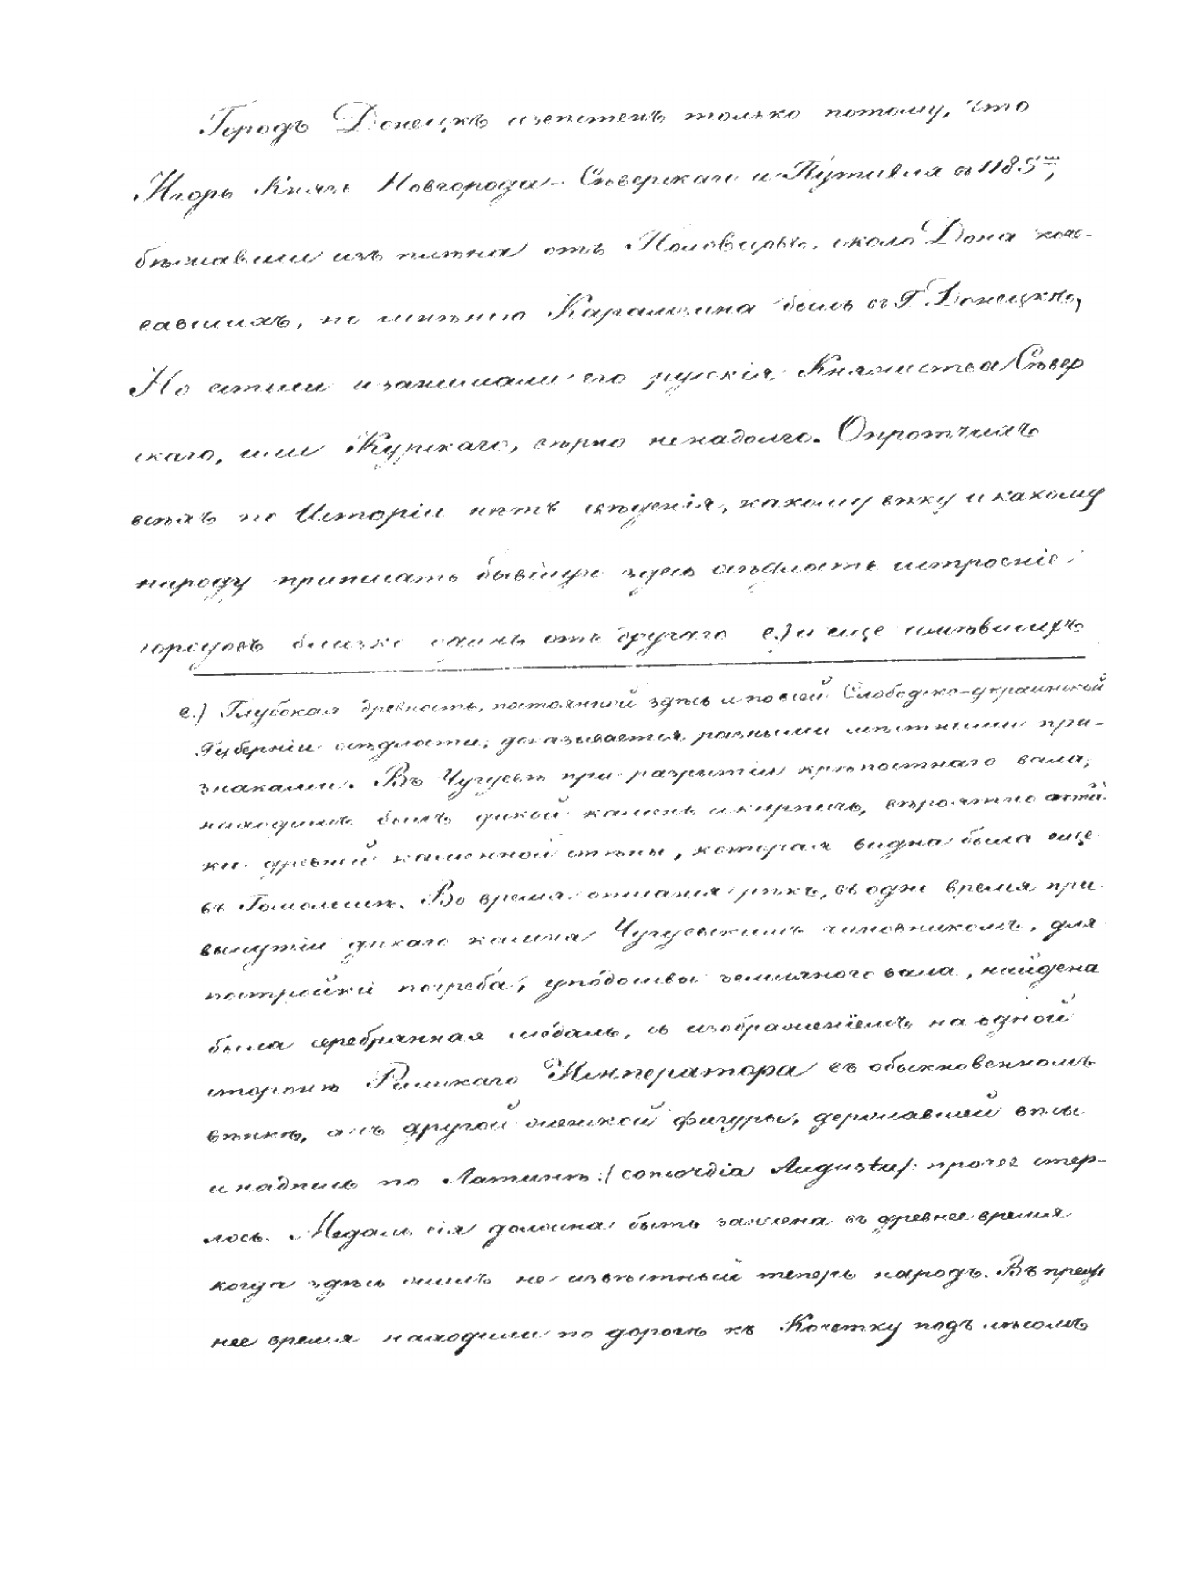 Городъ Донецкъ извѣстенъ только потому, что
Игорь Князь Новгорода-Сѣверскаго и Путивля въ 1185
бѣжавши изъ плѣна отъ Половцовъ, около Дона коче-
вавшихъ, по мнѣнію Карамзина былъ въ Г. Донецкѣ,
Но если и занимали его рускія Княжества Сѣвер
скаго, или Курскаго, вѣрно ненадолго. Опротчихъ
всѣхъ по Исторіи нѣтъ свѣденія, какому вѣку и какому
народу приписать бывшую здѣсь осѣдлость и строеніе
городовъ близко одинъ отъ другаго е.) и еще имѣвшихъ
е.) Глубокая древность, постоянной здѣсь и по всей Слободско-украинской
Губерніи осѣдлости, доказывается разными мѣстными при-
знаками. Въ Чугуевѣ при разрытіи крѣпостнаго вала,
находимъ былъ дикой камень и кирпичь, вѣроятно остат
ки древней каменной стѣны, которая видна была еще
въ Гомольшѣ. Во время описания рѣкъ, въ одно время при
вынутіи дикаго камня Чугуевскимъ чиновникомъ, для
постройки погреба, у подошвы земляного вала, найдена
была серебрянная медаль, съ изображеніемъ на одной
сторонѣ Римскаго Императора въ обыкновенномъ
вѣнкѣ, а съ другой женской фигуры, державшей вѣсы
и надпись по Латинѣ: / concordia Augustus /: прочее стер-
лось. Медаль сія должна быть завезена въ древнее время
когда здѣсь жилъ не извѣстный теперь народъ. Въ преж
нее время находили по дорогѣ къ Кочетку подъ лѣсомъ